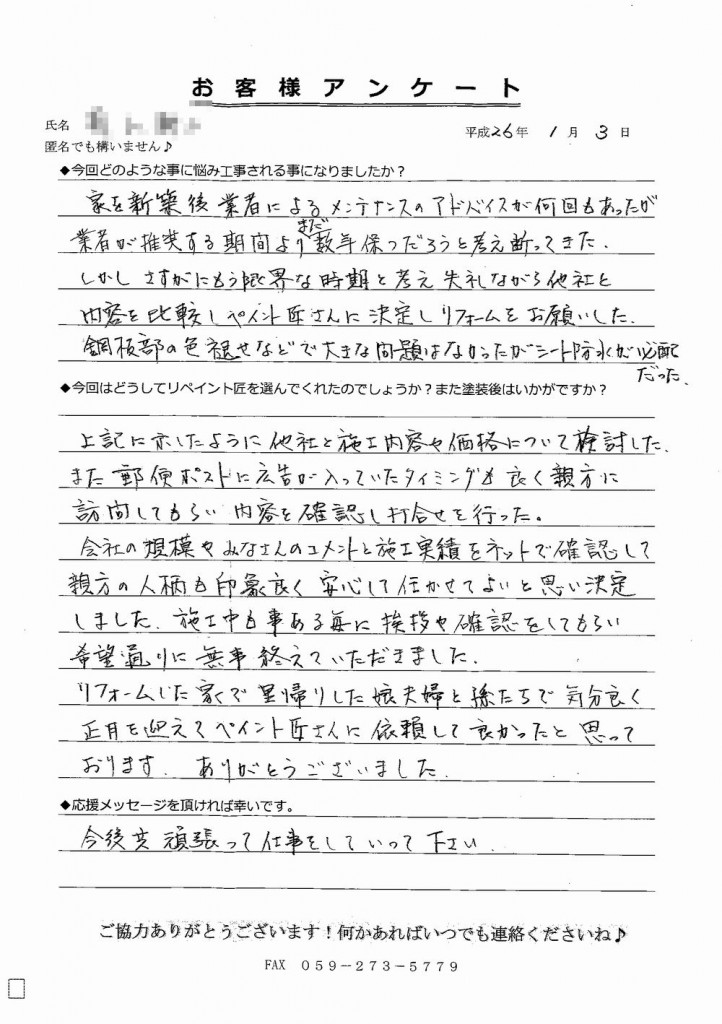 お客様アンケート
氏名
平成26年 1月 3日
匿名でも構いません♪
◆今回どのような事に悩み工事される事になりましたか？
家を新築後業者によるメンテナンスのアドバイスが何回もあったが
業者が推奨する期間よりまだ数年保つだろうと考え断ってきた.
しかしさすがにもう限界な時期と考え失礼ながら他社と
内容を比較しペイント匠さんに決定しリフォームをお願いした.
鋼板部の色褪せなどで大きな問題はなかったがシート防水が心配
だった.
◆今回はどうしてリペイント匠を選んでくれたのでしょうか？また塗装後はいかがですか？
上記に示したように他社と施工内容や価格について検討した.
また郵便ポストに広告が入っていたタイミングも良く親方に
訪問してもらい内容を確認し打合せを行った。
会社の規模やみなさんのコメントと施工実績をネットで確認して
親方の人柄も印象良く安心して任かせてよいと思い決定
しました.施工中も事ある毎に挨拶や確認をしてもらい
希望通りに無事終えていただきました.
リフォームした家で里帰りした娘夫婦と孫たちで気分良く
正月を迎えてペイント匠さんに依頼して良かったと思って
おります. ありがとうございました.
◆応援メッセージを頂ければ幸いです。
今後共頑張って仕事をしていって下さい.
ご協力ありがとうございます！何かあればいつでも連絡くださいね♪
FAX 059－273－5779